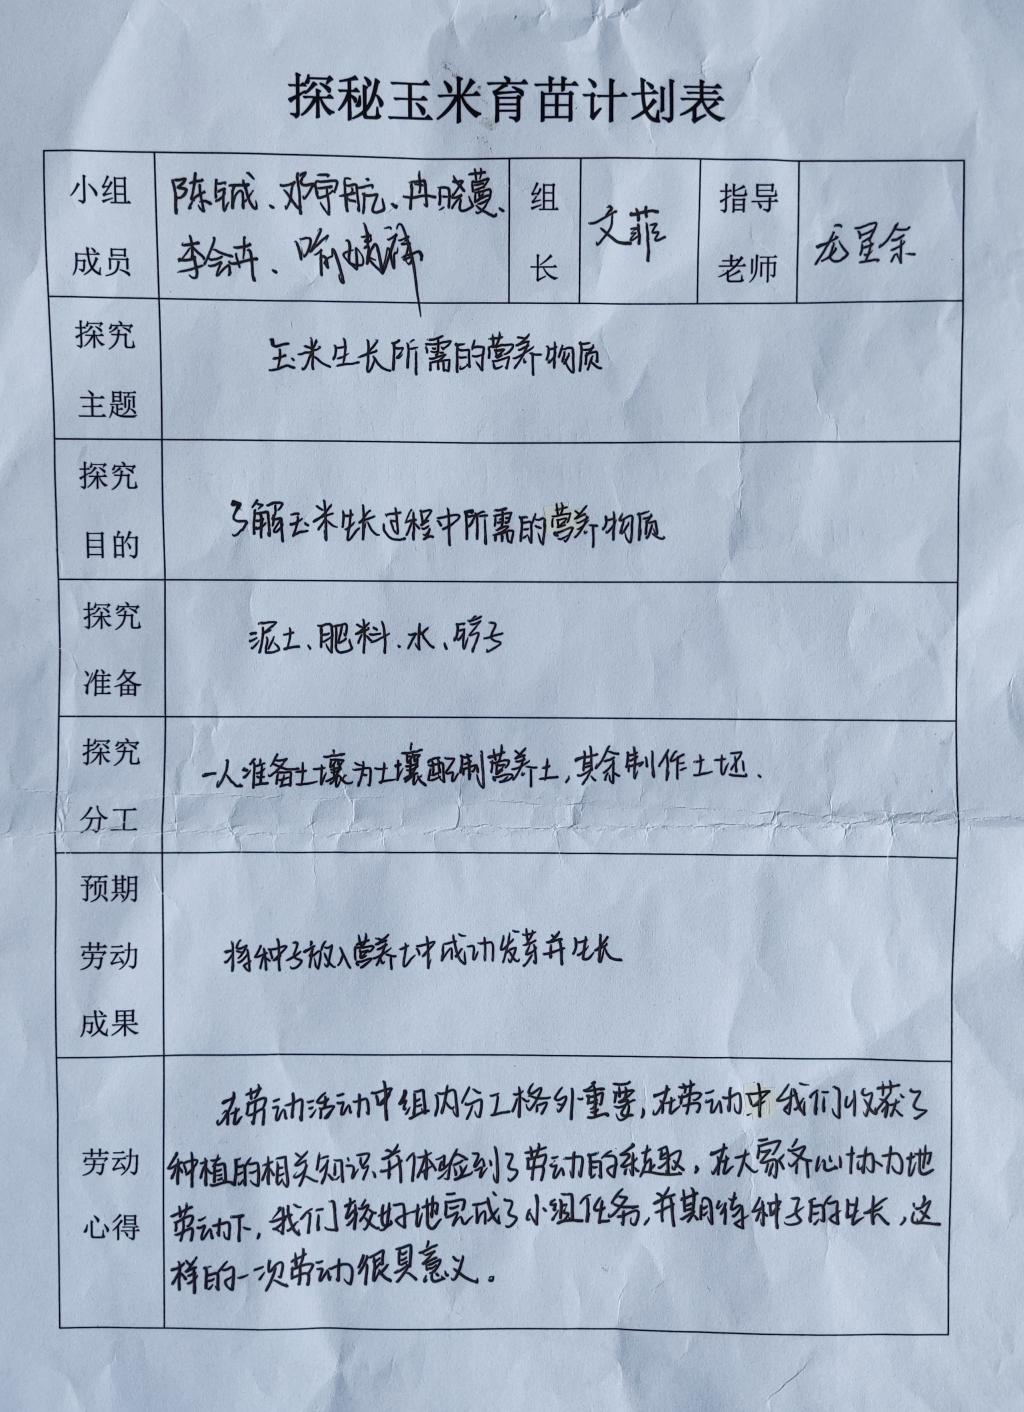 探秘玉米育苗计划表
小组成员
陈铖、邓宇航、冉晓蔓、
李会卉、喻婧祎
组长
文菲
指导老师
龙星余
探究主题
玉米生长所需的营养物质
探究目的
了解玉米生长过程中所需的营养物质
探究准备
泥土、肥料、水、铲子
探究分工
一人准备土壤为土壤配制营养土,其余制作土坯.
预期劳动成果
将种子放入营养土中成功发芽并生长
劳动心得
在劳动活动中组内分工格外重要,在劳动中我们收获了
种植的相关知识并体验到了劳动的乐趣,在大家齐心协力地
劳动下,我们较好地完成了小组任务,并期待种子的生长,这
样的一次劳动很具意义。